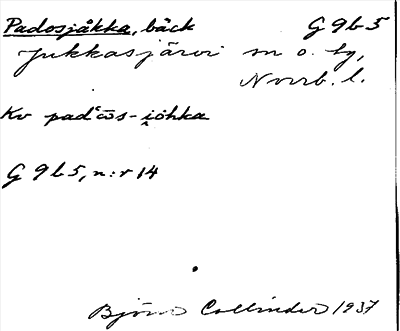 Padosjåkka, bäck G 9 b 5
Jukkasjärvi sn o. tg,
Norrb. l.
Kv padʻōs-i̯ȯhka
G 9 b 5, n:r 14
Björn Collinder 1937